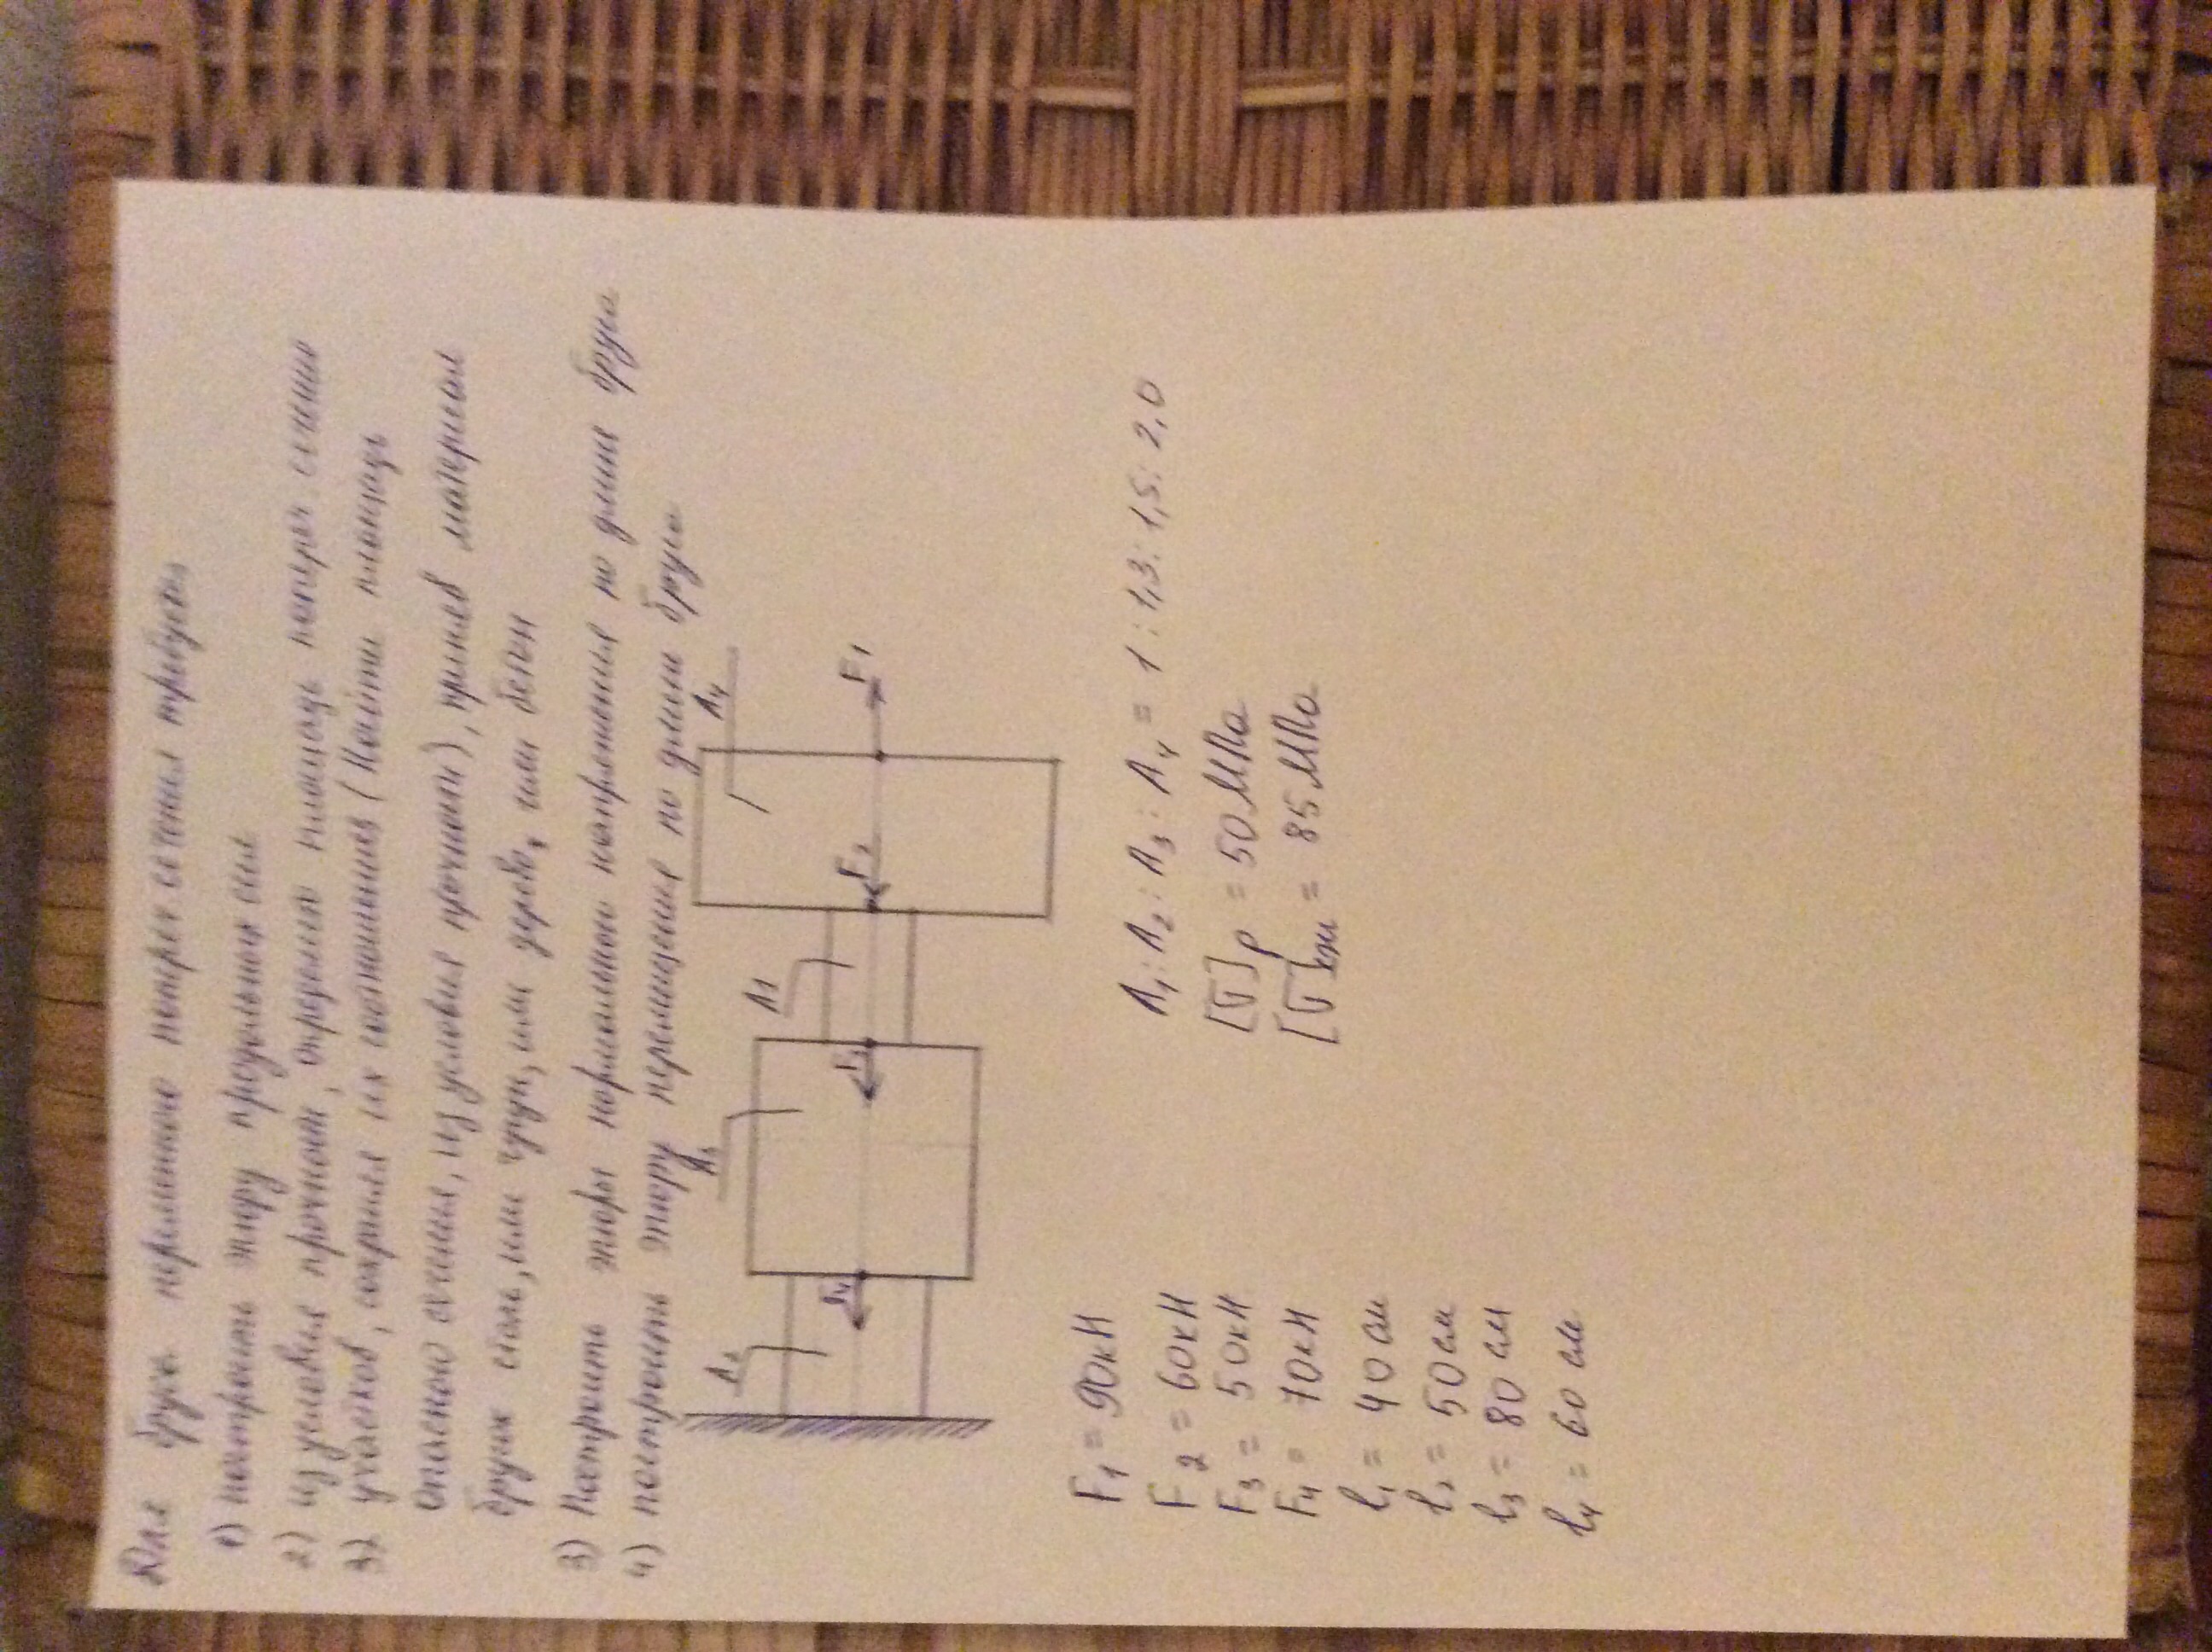 Для бруса переменного попереч сечения требуется
1) построить эпюру продольных сил
2) из условия прочности, определить площадь попереч. сечение
3) участков, сохраняя их соотношения (Найти площадь
опасного сечения, из условия прочности), приняв материал
бруса сталь, или чугун, или дерево, или бетон
3) Построить эпюры нормального напряжения по длине бруса
4) построить эпюру перемещения по длине бруса
A₂ A₃ A1 A₄
F₁ F₂ F1
F₁ = 90кН
F₂ = 60кН
F₃ = 50кН
F₄ = 70кН
l₁ = 40 см
l₂ = 50 см
l₃ = 80 см
l₄ = 60 см
A₁ : A₂ : A₃ : A₄ = 1 : 1,3 : 1,5 : 2,0
[σ]р = 50 МПа
[σ]сж = 85 МПа